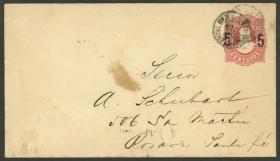 5 5
CENTAVOS
Señor
A. Schubart
506 San Martin
Rosario Santa fé